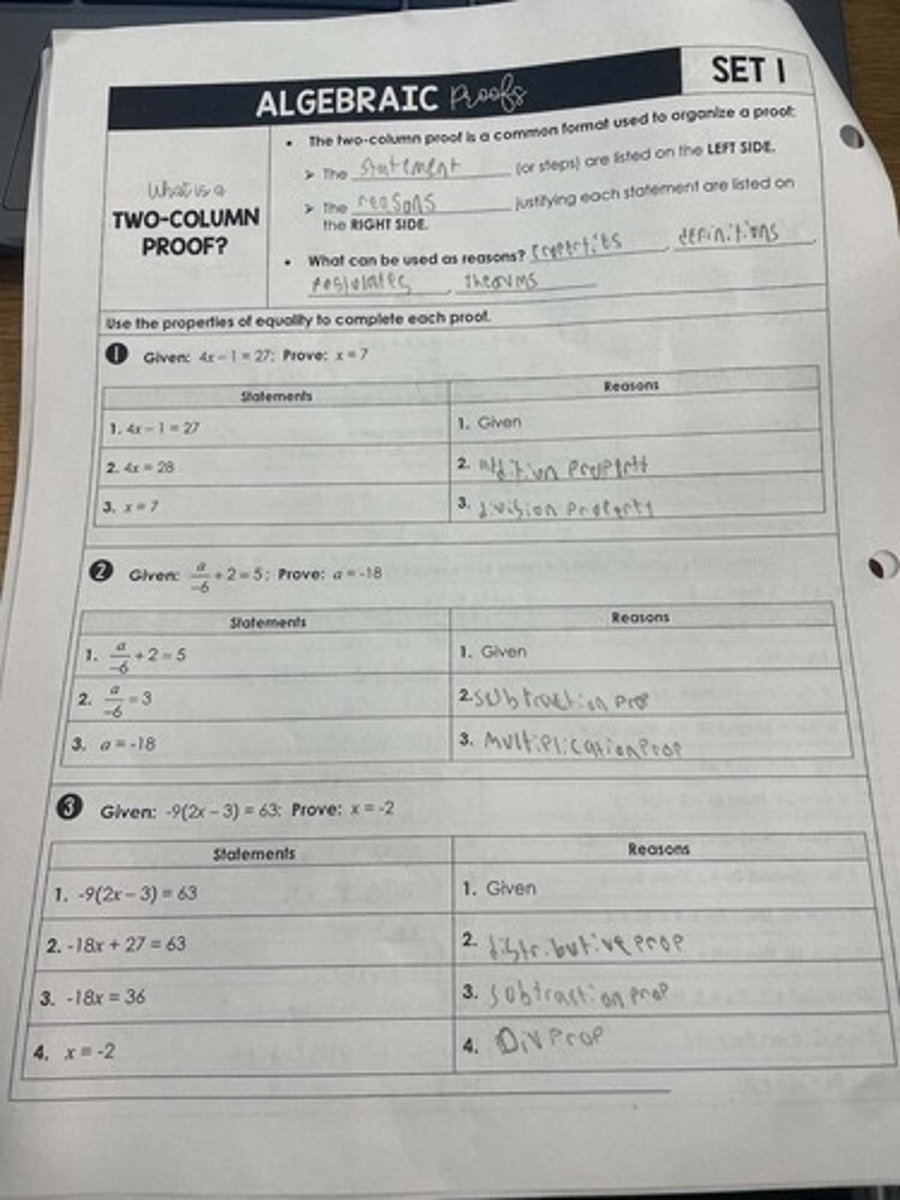 SET 1
ALGEBRAIC Proofs
What is a
TWO-COLUMN
PROOF?
• The two-column proof is a common format used to organize a proof:
➤ The statement (or steps) are listed on the LEFT SIDE.
➤ The reasons justifying each statement are listed on
the RIGHT SIDE.
• What can be used as reasons? definitions,
theorms
Use the properties of equality to complete each proof.
1 Given: 4x – 1 = 27; Prove: x = 7
Statements Reasons
1. 4x – 1 = 27 1. Given
2. 4x = 28 2.
3. x = 7 3. division
2 Given: a/-6 + 2 = 5; Prove: a = -18
Statements Reasons
1. a/-6 + 2 = 5 1. Given
2. a/-6 = 3 2. subtraction prop
3. a = -18 3. Multiplication Prop
3 Given: -9(2x – 3) = 63; Prove: x = -2
Statements Reasons
1. -9(2x – 3) = 63 1. Given
2. -18x + 27 = 63 2. distributive prop
3. -18x = 36 3. subtraction prop
4. x = -2 4. Div Prop